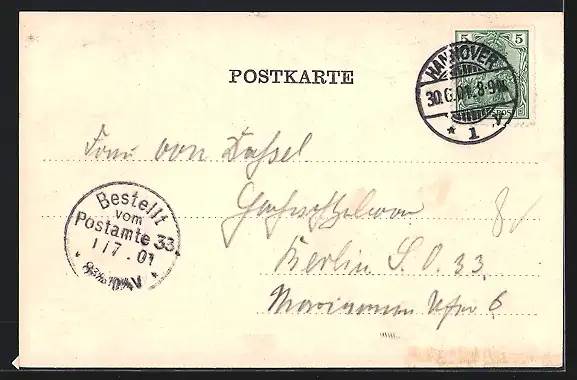 POSTKARTE
5 5
HANNOVER
30.6.01. 8-9N.
* 1 V
Frau von Dassel
Bestellt
vom
Postamte 33.
1/7.01
V
Berlin S. O. 33.
Ufer 6